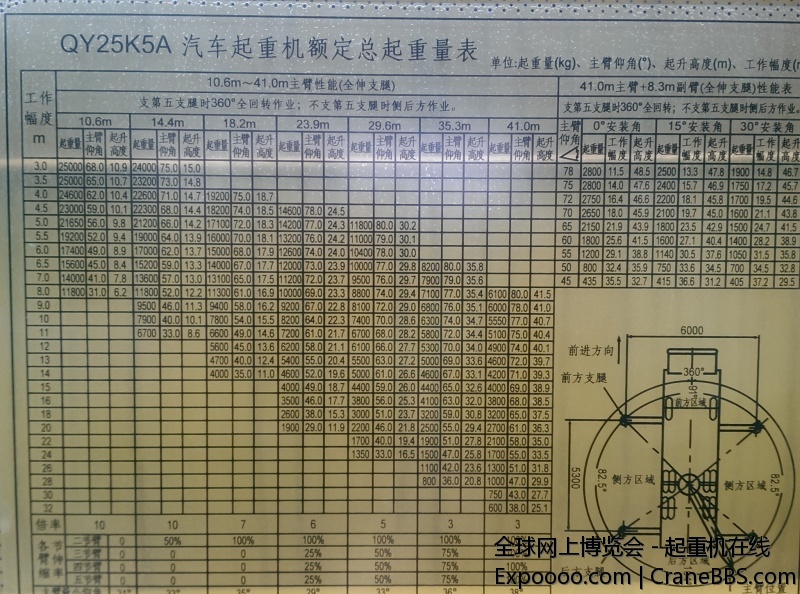 QY25K5A 汽车起重机额定总起重量表
单位:起重量(kg)、主臂仰角(°)、起升高度(m)、工作幅度(m
10.6m～41.0m主臂性能(全伸支腿)
支第五支腿时360°全回转作业；不支第五支腿时侧后方作业。
工作幅度 m
10.6m 14.4m 18.2m 23.9m 29.6m 35.3m 41.0m
起重量 主臂仰角 起升高度 起重量 主臂仰角 起升高度 起重量 主臂仰角 起升高度 起重量 主臂仰角 起升高度 起重量 主臂仰角 起升高度 起重量 主臂仰角 起升高度 起重量 主臂仰角 起升高度
3.0 25000 68.0 10.9 24000 75.0 15.0
3.5 25000 65.0 10.7 23200 73.0 14.8
4.0 24600 62.0 10.4 22600 71.0 14.7 19200 75.0 18.7
4.5 23000 59.0 10.1 22300 68.0 14.4 18200 74.0 18.5 14600 78.0 24.5
5.0 21650 56.0 9.8 21200 66.0 14.2 17100 72.0 18.3 14200 77.0 24.3 11800 80.0 30.2
5.5 19200 52.0 9.4 19000 64.0 13.9 16000 70.0 18.1 13200 76.0 24.2 11000 79.0 30.1
6.0 17400 49.0 8.9 17000 62.0 13.7 15000 68.0 17.9 12600 74.0 24.0 10400 78.0 30.0
6.5 15600 45.0 8.4 15200 59.0 13.3 14000 67.0 17.7 12000 73.0 23.9 10000 77.0 29.8 8200 80.0 35.8
7.0 14000 41.0 7.8 13600 57.0 13.0 13100 65.0 17.5 11200 72.0 23.7 9500 76.0 29.7 7900 79.0 35.6
8.0 11800 31.0 6.2 11800 52.0 12.2 11300 61.0 16.9 10000 69.0 23.3 8800 74.0 29.4 7100 77.0 35.4 6100 80.0 41.5
9.0 9500 46.0 11.3 9400 58.0 16.2 9200 67.0 22.8 8100 72.0 29.0 6800 76.0 35.1 6000 78.0 41.0
10 7900 40.0 10.1 7800 54.0 15.5 8200 64.0 22.3 7400 70.0 28.6 6300 74.0 34.7 5550 77.0 40.7
11 6700 33.0 8.6 6600 49.0 14.6 7200 61.0 21.7 6700 68.0 28.2 5800 72.0 34.4 5100 75.0 40.4
12 5600 45.0 13.6 6200 58.0 21.1 6100 66.0 27.7 5300 70.0 34.0 4900 74.0 40.1
13 4700 40.0 12.4 5400 55.0 20.4 5500 63.0 27.2 5000 69.0 33.6 4600 72.0 39.7
14 4000 35.0 11.0 4600 52.0 19.6 5000 61.0 26.6 4600 67.0 33.1 4200 71.0 39.3
15 4000 49.0 18.7 4400 59.0 26.0 4400 65.0 32.6 4000 69.0 38.9
16 3500 46.0 17.7 3800 56.0 25.3 4100 63.0 32.0 3800 68.0 38.5
18 2600 38.0 15.3 3000 51.0 23.7 3200 59.0 30.8 3200 65.0 37.5
20 1900 29.0 11.9 2200 46.0 21.8 2500 55.0 29.4 2700 61.0 36.3
22 1700 40.0 19.4 1900 51.0 27.8 2100 58.0 35.0
24 1350 33.0 16.5 1500 47.0 25.8 1700 55.0 33.5
26 1100 42.0 23.6 1300 51.0 31.8
28 800 36.0 20.8 1000 47.0 29.9
30 750 43.0 27.7
32 600 38.0 25.1
倍率 10 10 7 6 5 3 3
各节臂伸缩率
二节臂 0 50% 100% 100% 100% 100%
三节臂 0 0 0 25% 50% 75%
四节臂 0 0 0 25% 50% 75%
五节臂 0 0 0 25% 50% 75%
41.0m主臂+8.3m副臂(全伸支腿)性能表
支第五支腿时360°全回转；不支第五支腿时侧后方作业。
主臂仰角 0°安装角 15°安装角 30°安装角
起重量 工作幅度 起升高度 起重量 工作幅度 起升高度 起重量 工作幅度 起升高度
78 2800 11.5 48.5 2500 13.3 47.8 1900 14.8 46.7
75 2800 14.0 47.6 2400 15.7 46.9 1750 17.2 45.7
72 2750 16.4 46.6 2200 18.1 45.8 1700 19.5 44.6
70 2650 18.0 45.9 2100 19.7 45.0 1600 21.1 43.8
65 2150 21.9 43.9 1800 23.5 42.9 1500 24.7 41.5
60 1800 25.6 41.5 1600 27.1 40.4 1400 28.2 38.9
55 1200 29.1 38.8 1140 30.5 37.6 1050 31.5 35.8
50 800 32.4 35.9 750 33.6 34.5 700 34.5 32.8
45 435 35.5 32.7 415 36.6 31.2 405 37.2 29.5
6000
前进方向
前方支腿
360°
前方区域
侧方区域
侧方区域
82.5°
82.5°
5300
后方区域
后方支腿
主臂位置
全球网上博览会 --起重机在线
Expoooo.com | CraneBBS.com